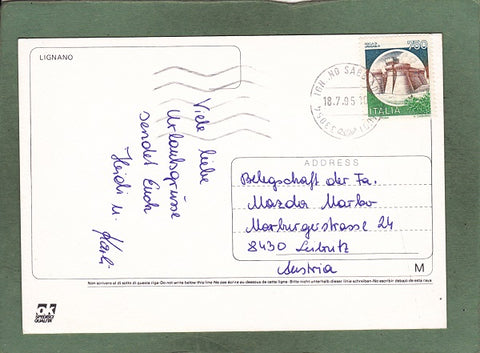 LIGNANO
Viele liebe
Urlaubsgrüsse
sendet Euch
Heidi u. Karli
18.7.95
750
ITALIA
ADDRESS
Belegschaft der Fa.
Mazda Marko
Marburgerstrasse 24
8430 Leibnitz
Austria
M
Non scrivere al di sotto di questa riga-Do not write below this line-Ne pas écrire au dessous de cette ligne-Bitte nicht unterhalb dieser linie schreiben-No escribir debajo de esta raya